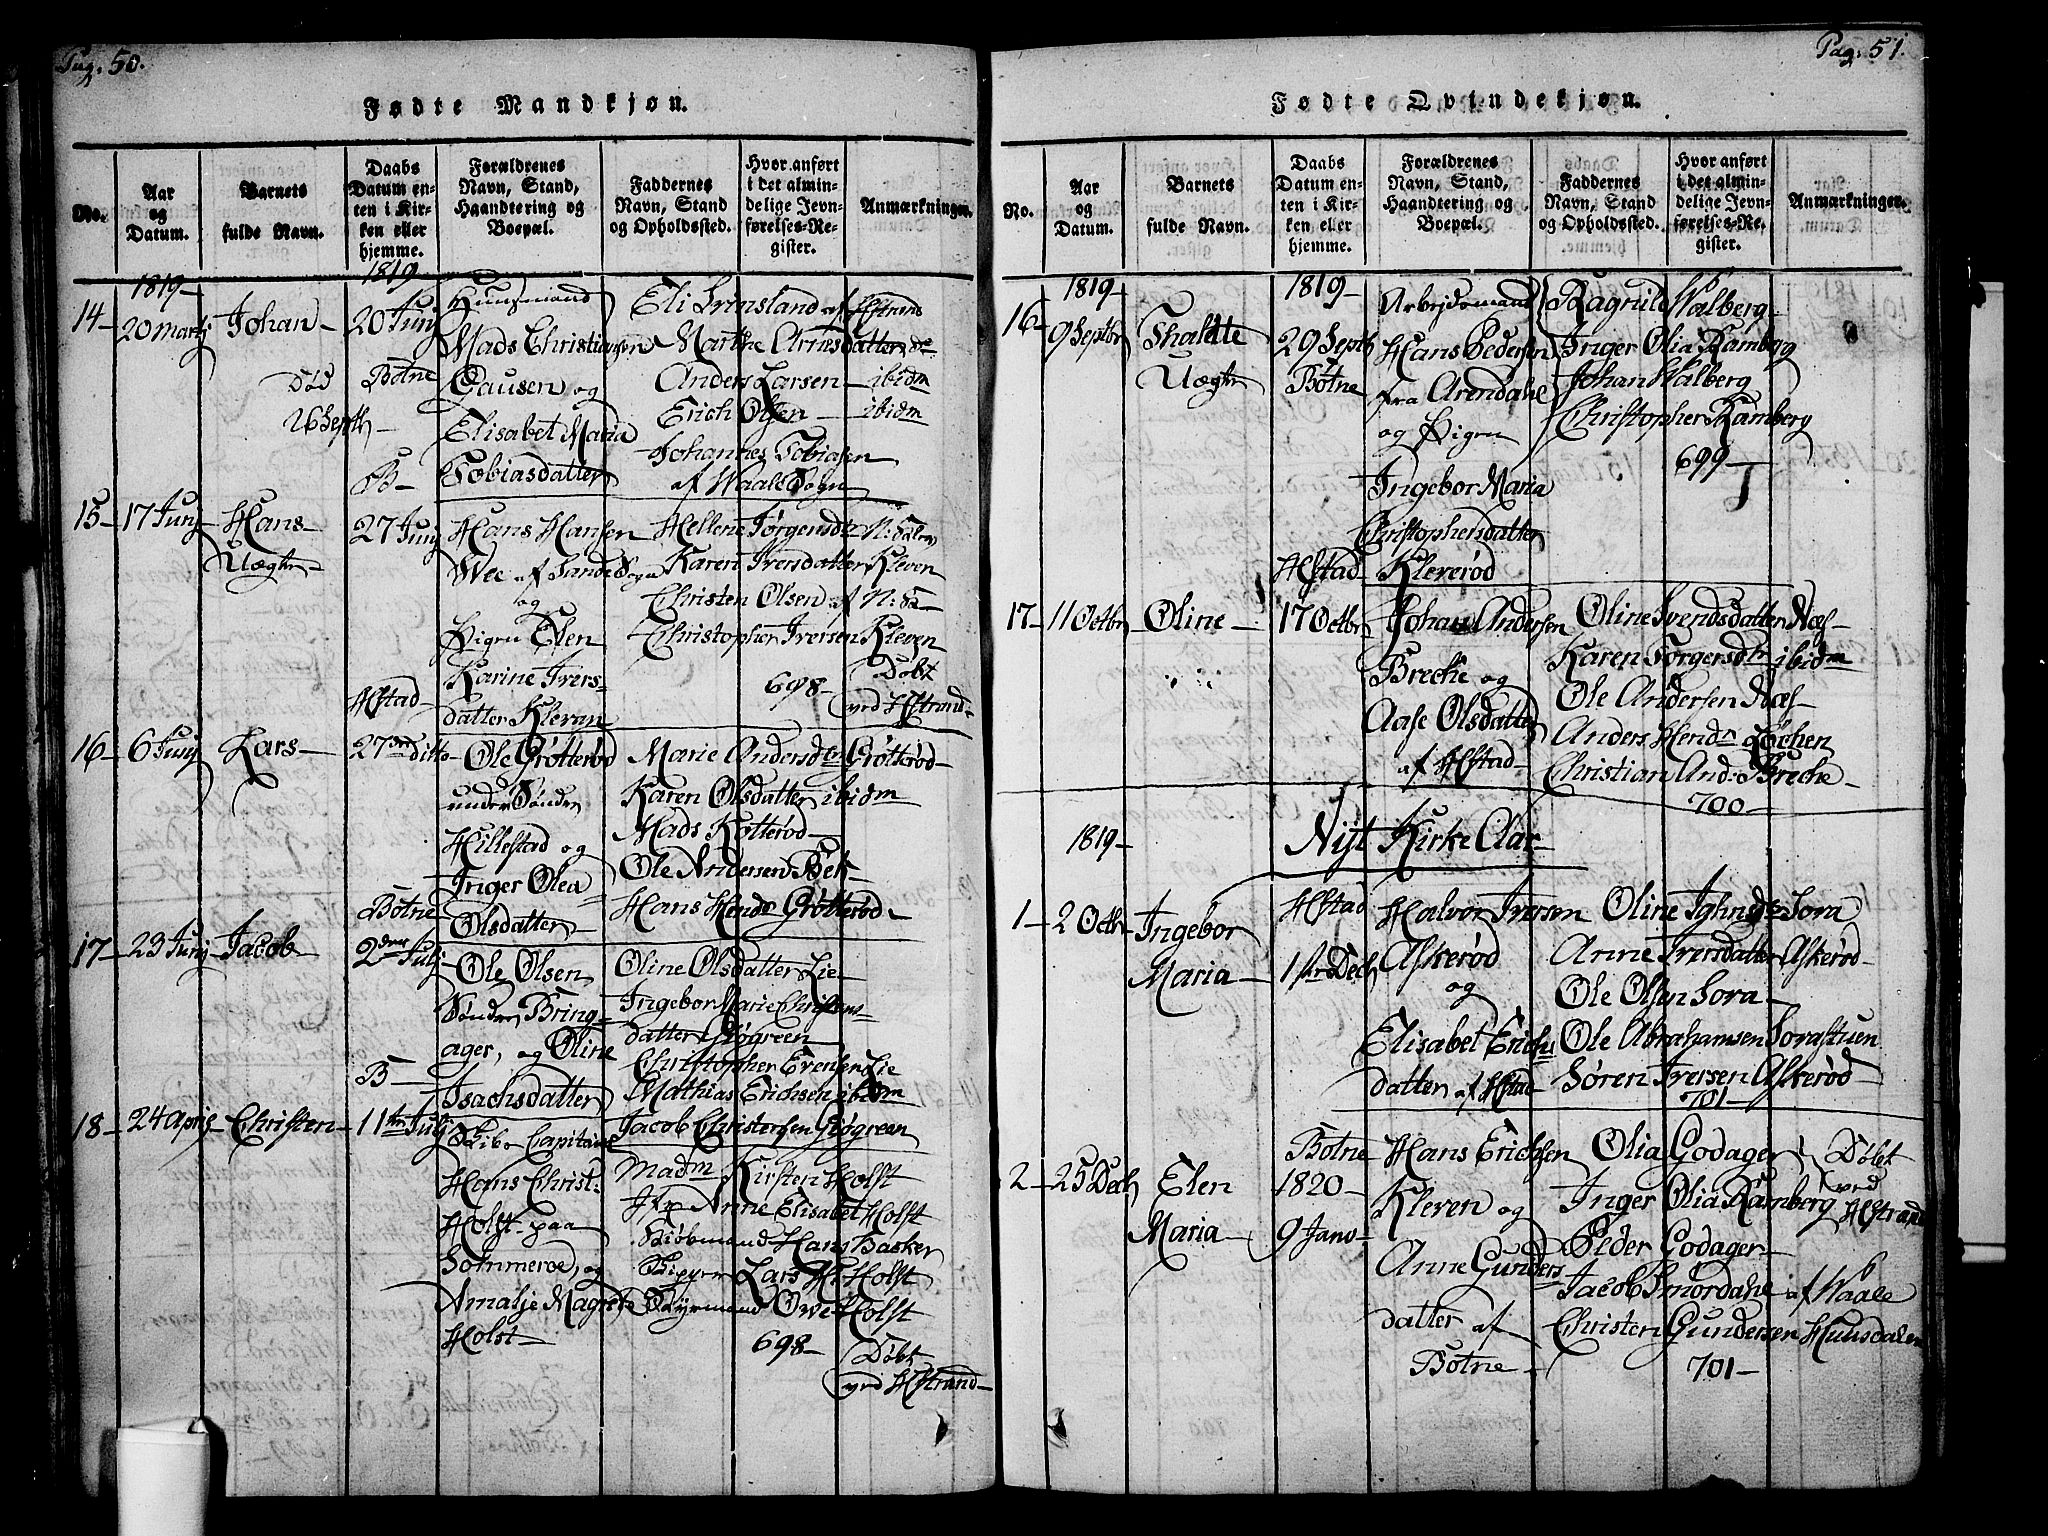 Pag. 50.
Fødte Mandkjøn.
No.
Aar
og
Datum.
Barnets
fulde Navn.
Daabs
Datum en-
ten i Kir-
ken eller
hjemme.
Forældrenes
Navn, Stand,
Haandtering og
Boepæl.
Faddernes
Navn, Stand
og Opholdssted.
Hvor anført
i det almin-
delige Jevn-
førelses-Re-
gister.
Anmærkninger.
14-
1819-
20 Martj
Johan-
Død
26 Septb
1819
20 Junj
Botne
B-
Huusmand
Mads Christiansen
Gausen og
Elisabet Maria
Tobiasdatter
Eli af Hstrand
Marthe Arnesdatter de
Anders Larsen - ibidm
Erich Olsen - ibidm
Johannes Tobiasen
af Waale Sogn
15- 17 Junj
Hans-
Uægte
27 Junj
Hfstad-
Hans Hansen
Wee af Sande Sogn
og
Pigen Elen
Karine Ivers-
datter Klevan
Hellene Jørgensdtr N: Dalen
Karen Iversdatter Kleven
Christen Olsen af N: Da-
Christopher Iversen Kleven
698-
Døbt
ved Hfstrand-
16- 6 Junj
Lars-
27de ditto
Botne
Ole Grøtterød
under Søndre
Hillestad og
Inger Olea
Olsdatter-
Marie Andersdtr Grøtterød-
Karen Olsdatter ibidm
Mads Kotterød-
Ole Andersen Bek-
Hans Hends Grøtterød-
17- 23 Junj
Jacob-
2den Julj
B-
Ole Olsen
Søndre Bring-
ager, og Oline
Isachsdatter
Oline Olsdatter Lie
Ingebor Marie Christens-
datter Gjøgreen
Christopher Evensen Lie
Mathias Erichsen ibidm
18- 24 April
Christen-
11te Julj
Skibs Capitain
Hans Christ:
Holst paa
Sommeroe, og
Amalje Magrete
Holst-
Jacob Christensen Gjøgreen
Madm Kirsten Holst
Jfr Anne Elisabet Holst
Kiøbmand Hans Basker
Lars H: Holst
Styrmand Owe Holst
698-
Døbt
ved Hfstrand-
Pag. 51.
Fødte Qvindekjøn.
No.
Aar
og
Datum.
Barnets
fulde Navn.
Daabs
Datum en-
ten i Kir-
ken eller
hjemme.
Forældrenes
Navn, Stand,
Haandtering og
Boepæl.
Faddernes
Navn, Stand
og Opholdssted.
Hvor anført
i det almin-
delige Jevn-
førelses-Re-
gister.
Anmærkninger.
16-
1819-
9 Septbr
Thalette
Uægte
1819-
29 Septb
Botne
Hfstad
Arbejdsmand
Hans Pedersen
fra Arendahl
og Pigen
Ingebor Maria
Christophersdatter
Kleverød
Ragnild Walberg
Inger Olia Ramberg
Johan Walberg
Christopher Ramberg
699-
17- 11 Octbr
Oline-
17 Octbr
Johan Andersen
Breche og
Aase Olsdatter
af Hfstad-
Oline Svendsdatter Næs-
Karen Torgersdtr ibidm
Ole Andersen Næs-
Anders Hendr Løchen
Christian And: Breche-
700-
1819-
Nyt Kirke Aar-
1- 2 Octbr
Ingebor
Maria-
Hfstad
1ste Decb
Halvor Iversen
Askerød
og
Elisabet Erichs
datter af Hfstad-
Oline Sora
Anne Iversdatter Askerød-
Ole Olsen Sora-
Ole Abrahamsen Sorastuen
Søren Iversen Askerød-
701-
2- 25 Decb
Elen
Maria-
Botne
1820-
9 Janv-
Hans Erichsen
Kleven og
Anne Gunders-
datter af
Botne-
Olia Godager
Inger Olia Ramberg
Peder Godager-
Jacob Smørdahl af Waale
Christen Gundersen Huusdalen
701-
Døbt
ved
Hfstrand